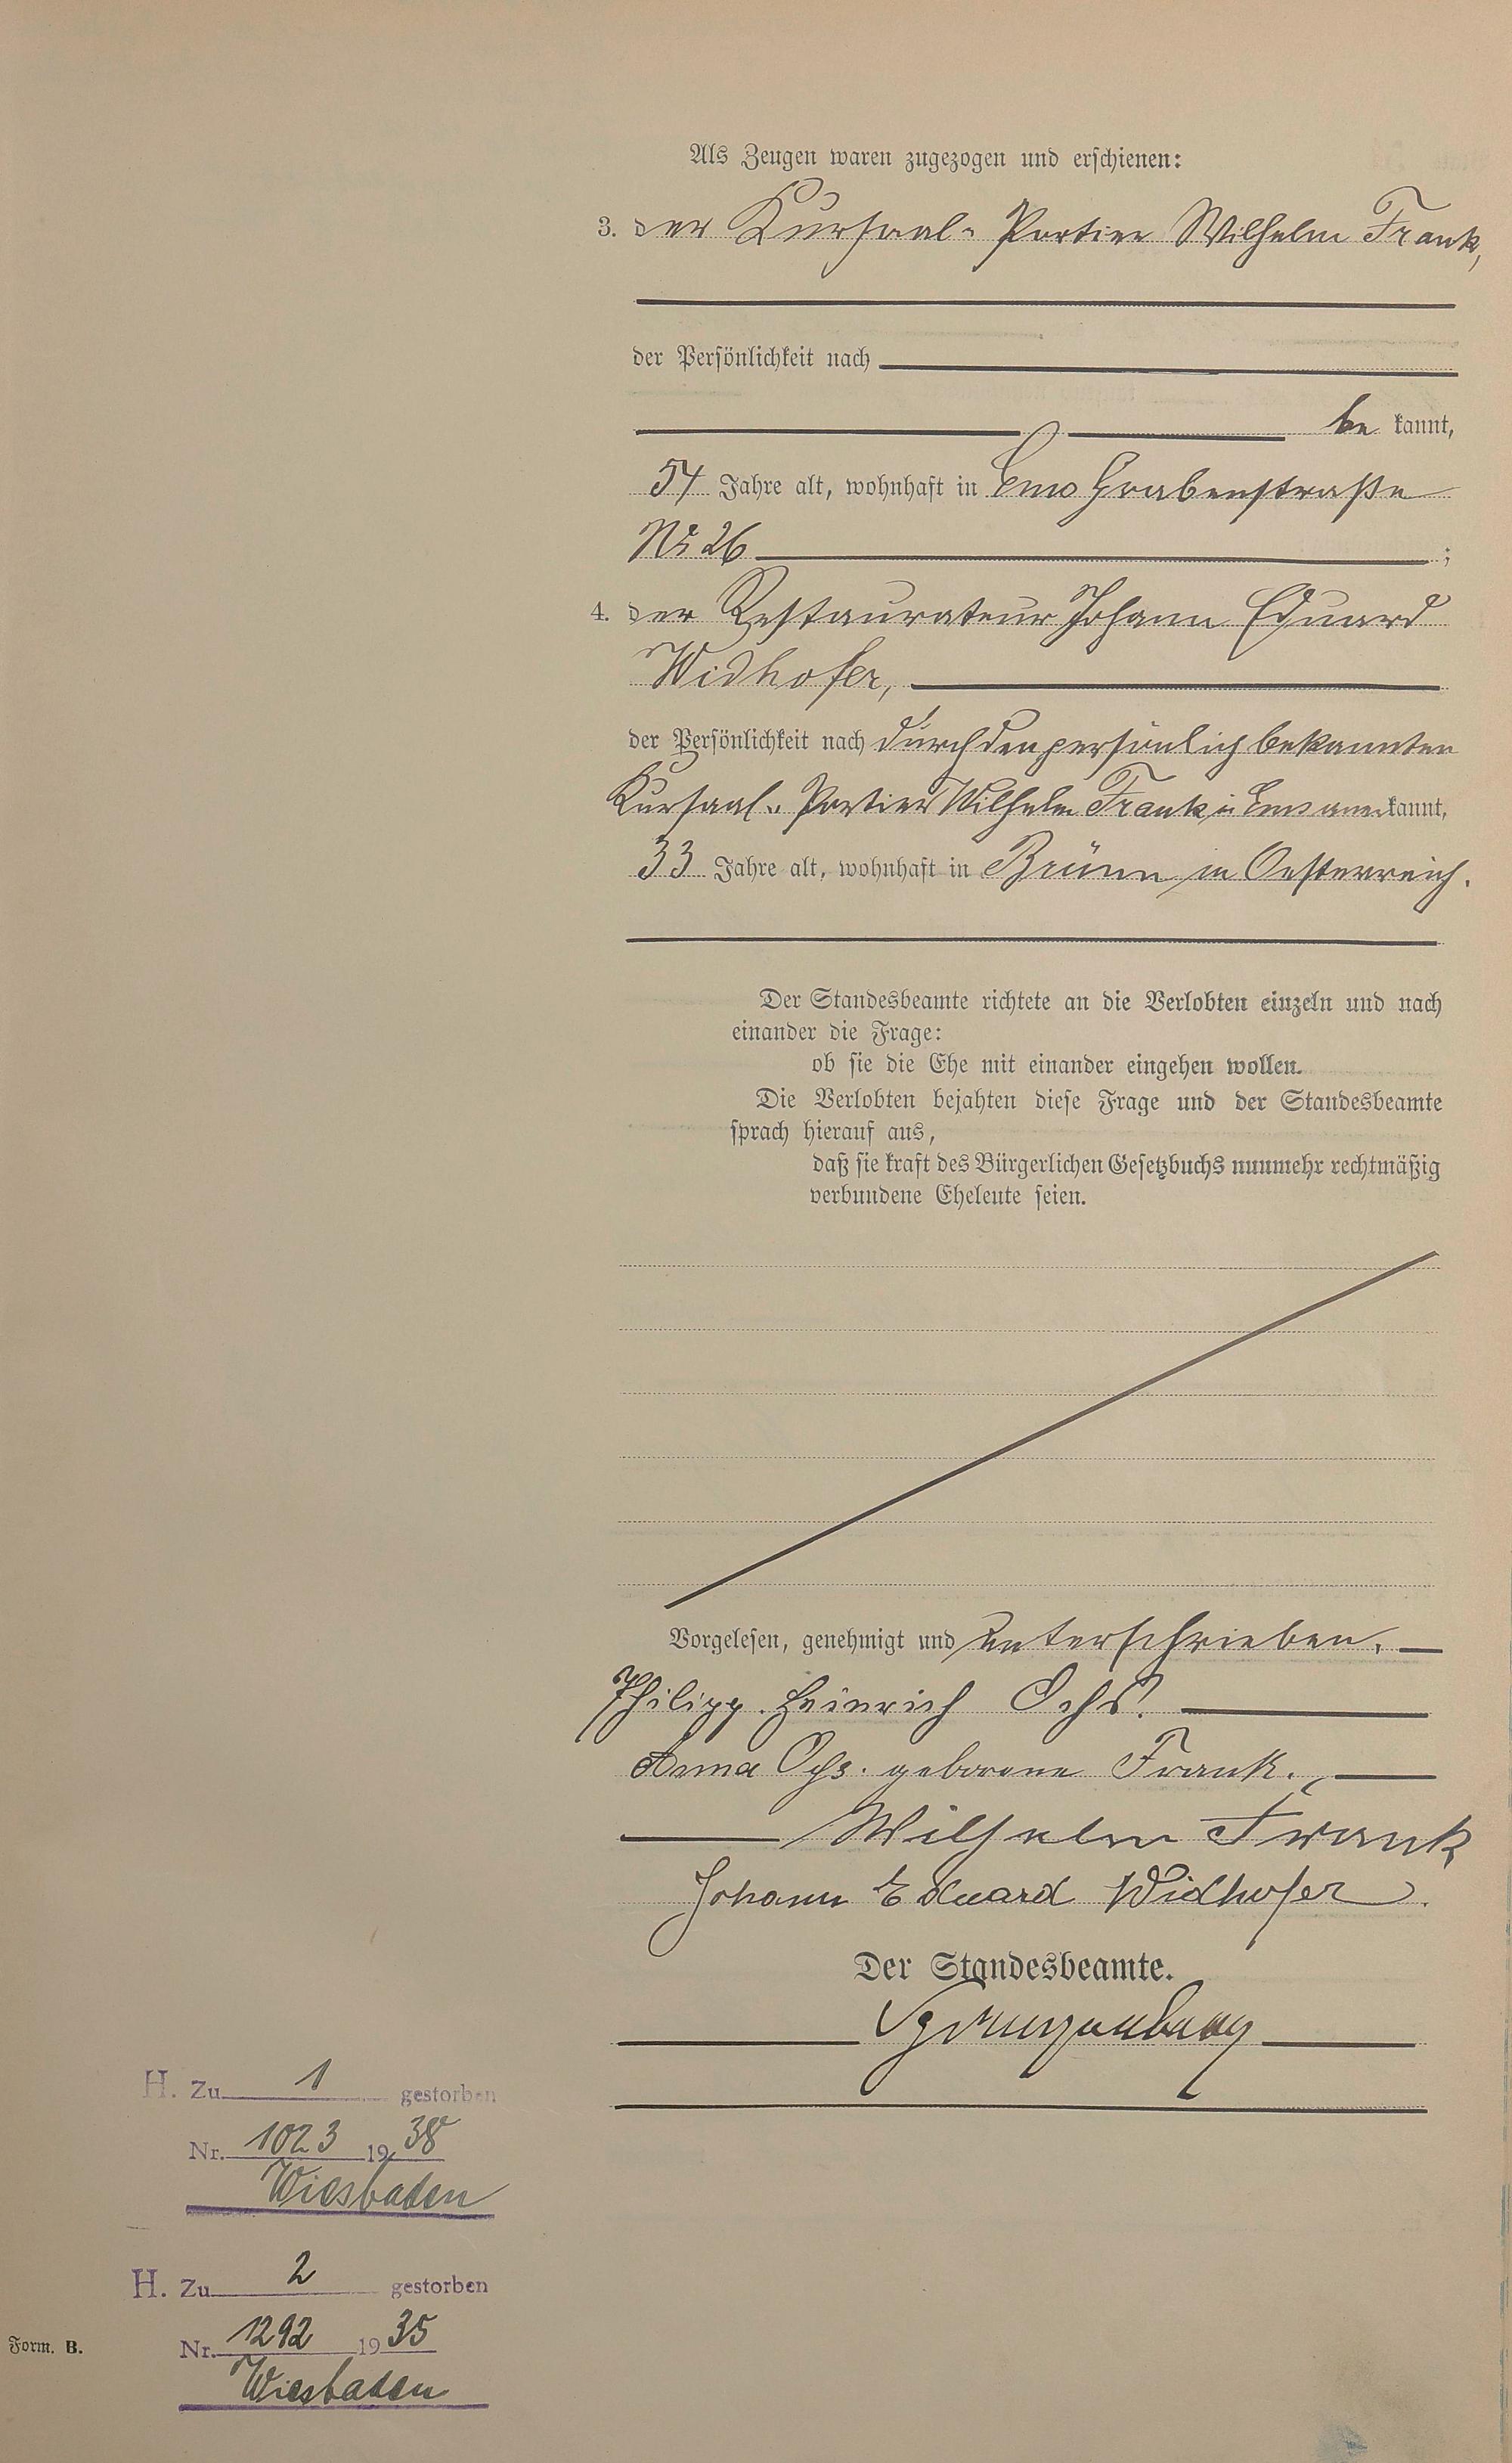 Als Zeugen waren zugezogen und erschienen:
3. der Kursaal-Portier Wilhelm Frank,
der Persönlichkeit nach
be kannt,
54 Jahre alt, wohnhaft in Ems Grabenstraße
No 26 ;
4. der Restaurateur Johann Eduard
Widhofer,
der Persönlichkeit nach durch den persönlich bekannten
Kursaal-Portier Wilhelm Frank in Ems anerkannt,
33 Jahre alt, wohnhaft in Brünn in Oesterreich.
Der Standesbeamte richtete an die Verlobten einzeln und nach
einander die Frage:
ob sie die Ehe mit einander eingehen wollen.
Die Verlobten bejahten diese Frage und der Standesbeamte
sprach hierauf aus,
daß sie kraft des Bürgerlichen Gesetzbuchs nunmehr rechtmäßig
verbundene Eheleute seien.
Vorgelesen, genehmigt und unterschrieben.
Philipp Heinrich Ochs.
Anna Ochs. geborene Frank.
Wilhelm Frank
Johann Eduard Widhofer.
Der Standesbeamte.
H. Zu 1 gestorben
Nr. 1023 1938
Wiesbaden
H. Zu 2 gestorben
Nr. 1292 1935
Wiesbaden
Form. B.